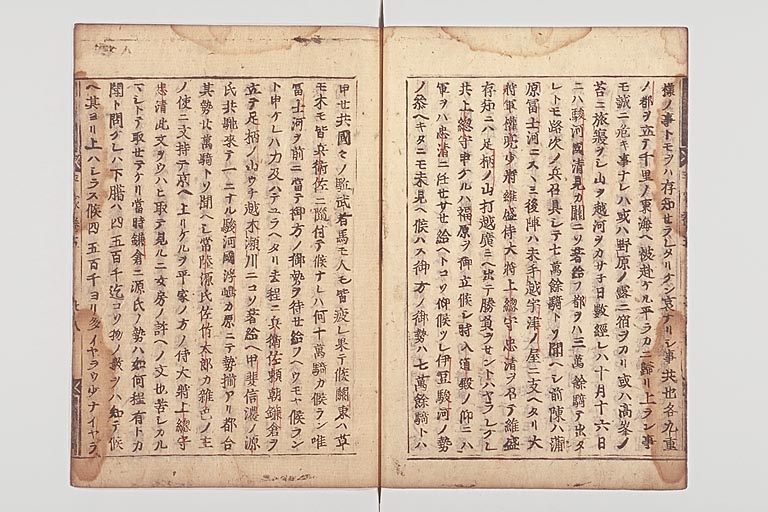 様ノ事トモヲハ存知セラレタリケン哀アリシ事共也各九重
ノ都ヲ立テ千里ノ東海ヘ被赴ケル平ラカニ帰リ上ラン事
モ誠ニ危キ事ナレハ或ハ野原ノ露ニ宿ヲカリ或ハ高峯ノ
苔ニ旅寝ヲシ山ヲ越河ヲカサナ日數經レハ十月十六日
ニハ駿河國清見カ關ニソ着給フ都ヲハ三萬餘騎テ出タ
レトモ路次ノ兵召具シテ七萬餘騎トソ聞ヘシ前陣ハ蒲
原冨士河ニスヽミ後陣ハ未手越宇津ノ屋ニ支ヘタリ大
将軍權亮少将維盛侍大将上總守忠清ヲ召テ維盛
存知ニハ足柄ノ山打越廣ミヘ出テ勝負ヲセハトハヤラレケレ
共上總守申ケルハ福原ヲ御立候シ時入道殿ノ仰ニハ
軍ヲハ忠清ニ任セサセ給ヘトコソ仰候ツレ伊豆駿河ノ勢
ノ参ヘキタニモ未見ヘ候ハス御方ノ御勢ハ七萬餘騎トハ
申セ共國々ノ駈武者馬モ人モ皆疲レ果テ候關東ハ草
モ木モ皆兵衛佐ニ隨付テ候ナレハ何十萬騎カ候ラン唯
冨士河ヲ前ニ當テ御方ノ御勢ヲ待セ給フヘウモヤ候ラン
ト申ケレハ力及ハテユラヘタリ去程ニ兵衛佐頼朝鎌倉ヲ
立テ足柄ノ山ウチ越木瀬川ニコソ着給ヘ甲斐信濃ノ源
氏共馳来テ一ニナル駿河國浮嶋カ原ニテ勢揃アリ都合
其勢廿萬騎トソ聞ヘシ常陸源氏佐竹太郎カ雑色ノ主
ノ使ニ文持テ京ヘ上リケルヲ平家ノ方ノ侍大将上總守
忠清此文ヲウハヒ取テ見ルニ女房ノ許ヘノ文也苦シカル
マシトテ取セテケリ當時鎌倉ニ源氏ノ勢ハ如何程有トカ
聞ト問ケレハ下臈ハ四五百千迄コソ物ノ數ヲハ知テ候
ヘ其ヨリ上ハシラス候四五百千ヨリ多イヤラウ少ナイヤラ